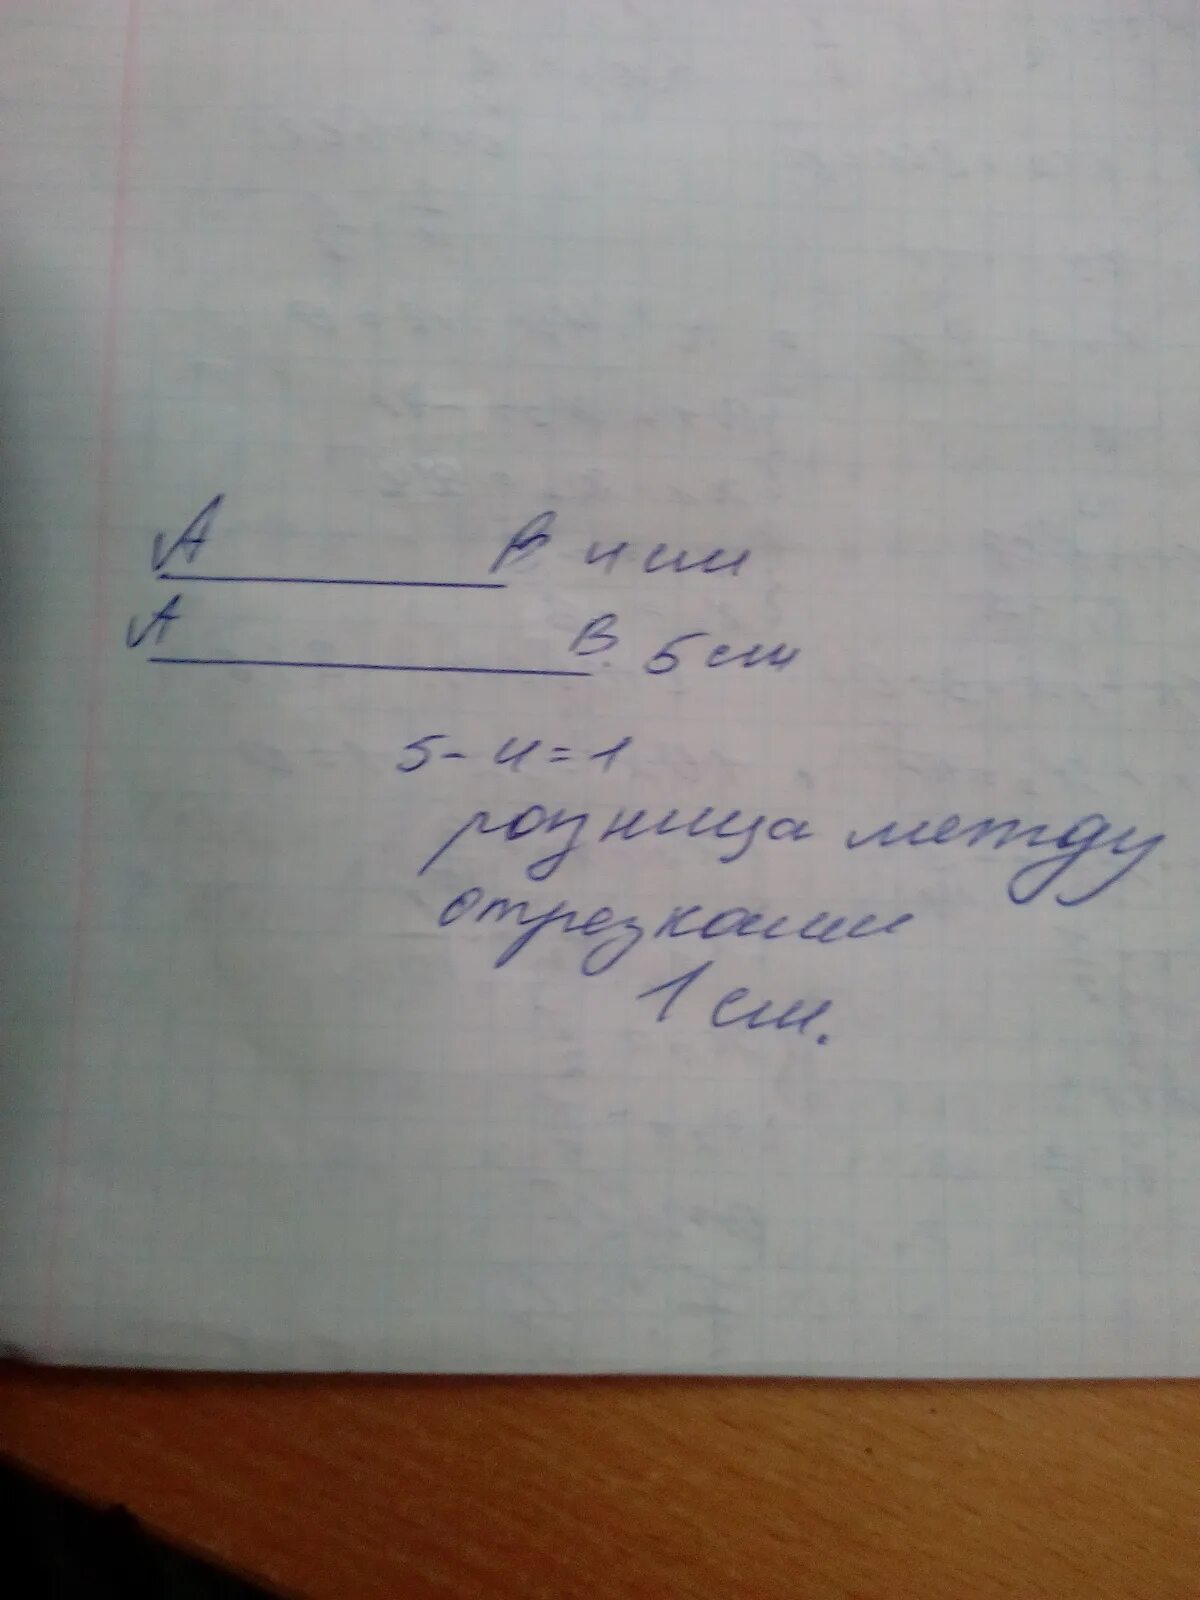 А В 4 см
А В. 5 см
5 - 4 = 1
розница между
отрезками
1 см.